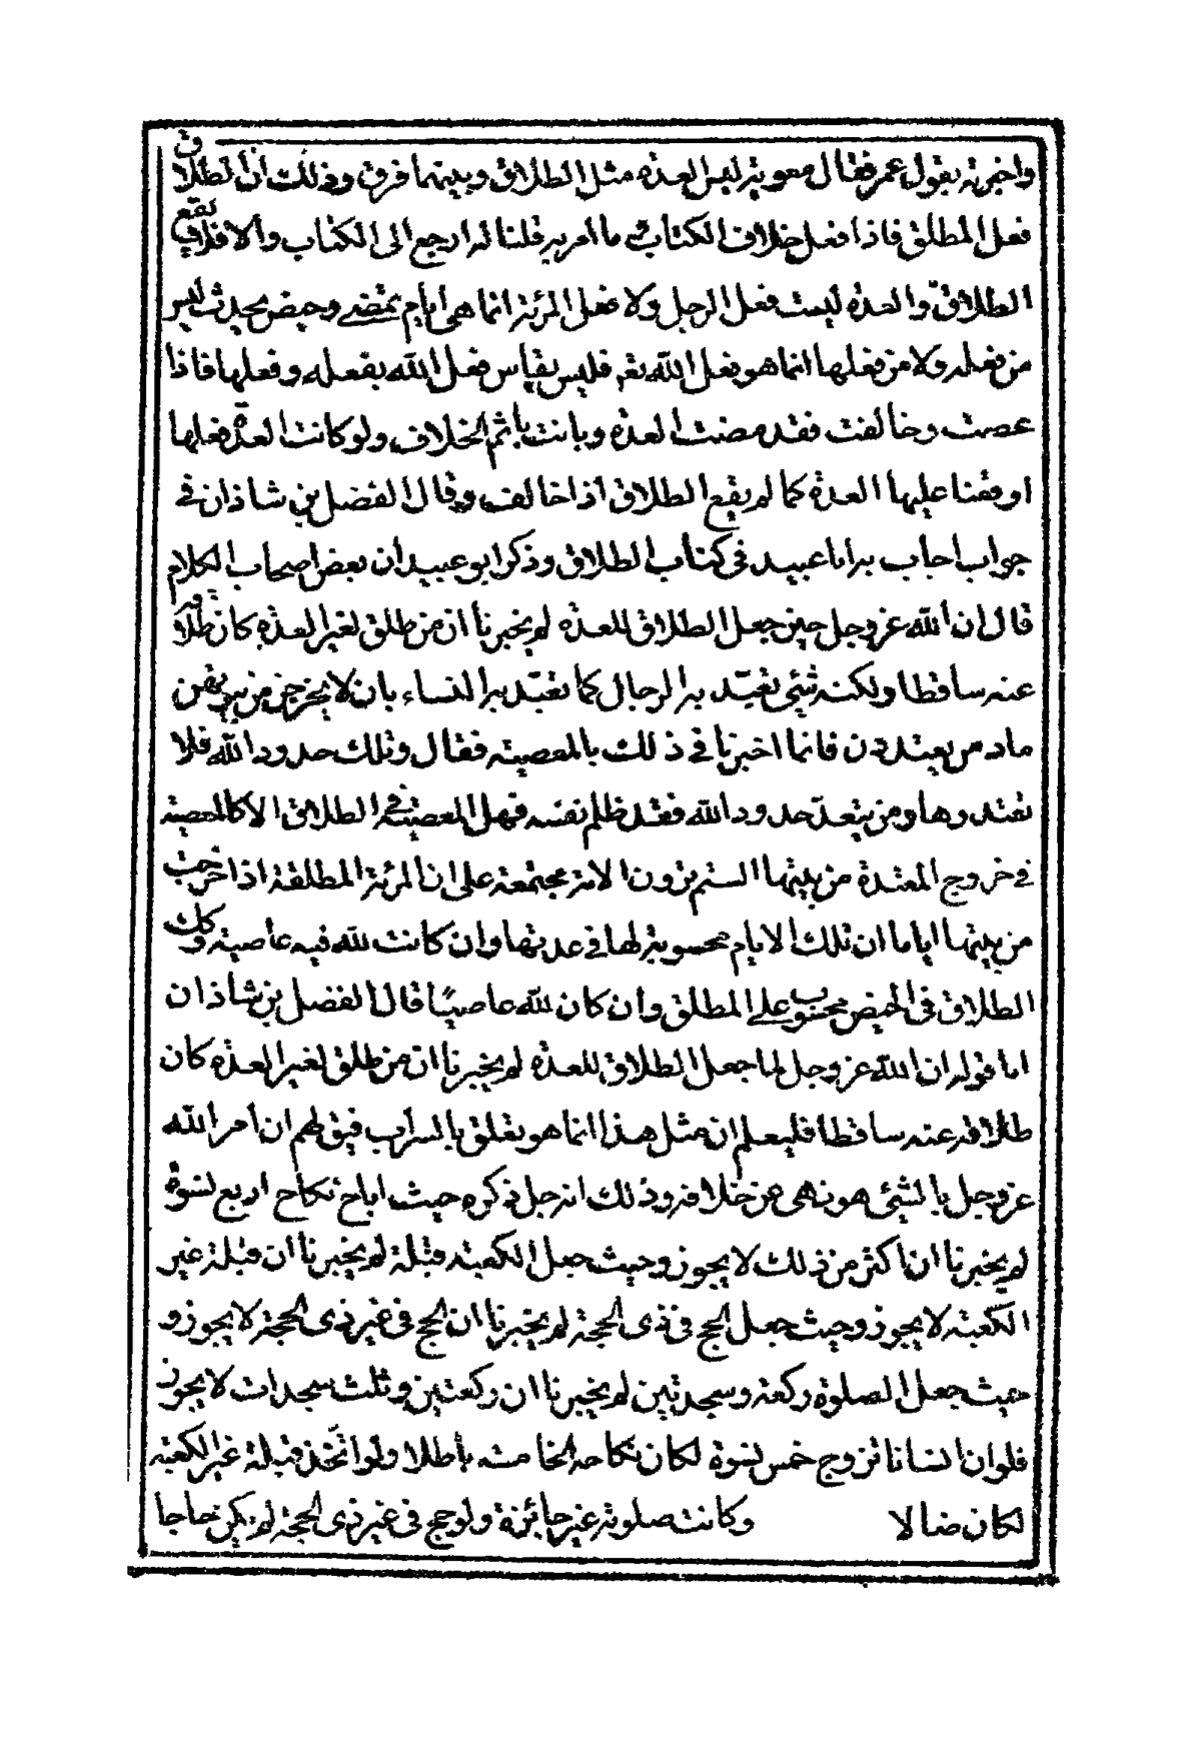 واخبرته بقول عمر فقال معوية ليس العدة مثل الطلاق وبينهما فرق وذلك ان الطلاق
فعل المطلق فاذا فعل خلاف الكتاب وما امر به قلنا له ارجع الى الكتاب والا فلا يقع
الطلاق والعدة ليست فعل الرجل ولا فعل المرئة انما هي ايام تمضے وحيض يحدث ليس
من فعله ولا من فعلها انما هو فعل الله تعه فليس يقاس فعل الله بفعله وفعلها فاذا
عصت وخالفت فقد مضت العدة وبانت باثم الخلاف ولو كانت العدة فعلها
اوقعنا عليها العدة كما لم يقع الطلاق اذا خالف وقال الفضل بن شاذان في
جواب اجاب به ابا عبيد في كتاب الطلاق وذكر ابو عبيد ان بعض اصحاب الكلام
قال ان الله عز وجل حين جعل الطلاق للعدة لم يخبرنا ان من طلق لغير العدة كان طلاقه
عنه ساقطا ولكنه شئ تعبّد به الرجال كما تعبّد به النساء بان لا يخرجن من بيوتهن
مادمن يعتددن فانما اخبرنا في ذلك بالمعصية فقال وتلك حدود الله فلا
تعتدوها ومن يتعدّ حدود الله فقد ظلم نفسه فهل المعصية في الطلاق الا كالمعصية
في خروج المعتدة من بيتها الستم ترون الامة مجتمعة على ان المرئة المطلقة اذا خرجت
من بيتها اياما ان تلك الايام محسوبة لها في عدتها وان كانت لله فيه عاصية وكك
الطلاق في الحيض محسوب على المطلق وان كان لله عاصيًا قال الفضل بن شاذان
اما قوله ان الله عز وجل لما جعل الطلاق للعدة لم يخبرنا ان من طلق لغير العدة كان
طلاقه عنه ساقطا فليعلم ان مثل هذا انما هو تعلق بالسراب فيق لهم ان امر الله
عز وجل بالشئ هو نهى عن خلافه وذلك انه جل ذكره حيث اباح نكاح اربع نسوة
لم يخبرنا ان اكثر من ذلك لا يجوز وحيث جعل الكعبة قبلة لم يخبرنا ان قبلة غير
الكعبة لا يجوز وحيث جعل الحج في ذى الحجة لم يخبرنا ان الحج في غير ذى الحجة لا يجوز و
حيث جعل الصلوة ركعة وسجدتين لم يخبرنا ان ركعتين وثلث سجدات لا يجوز
فلو ان انسانا تزوج خمس نسوة لكان نكاحه الخامسة باطلا ولو اتّخذ قبلة غير الكعبة
لكان ضالا وكانت صلوته غير جائزة ولو حج في غير ذى الحجة لم يكن حاجا